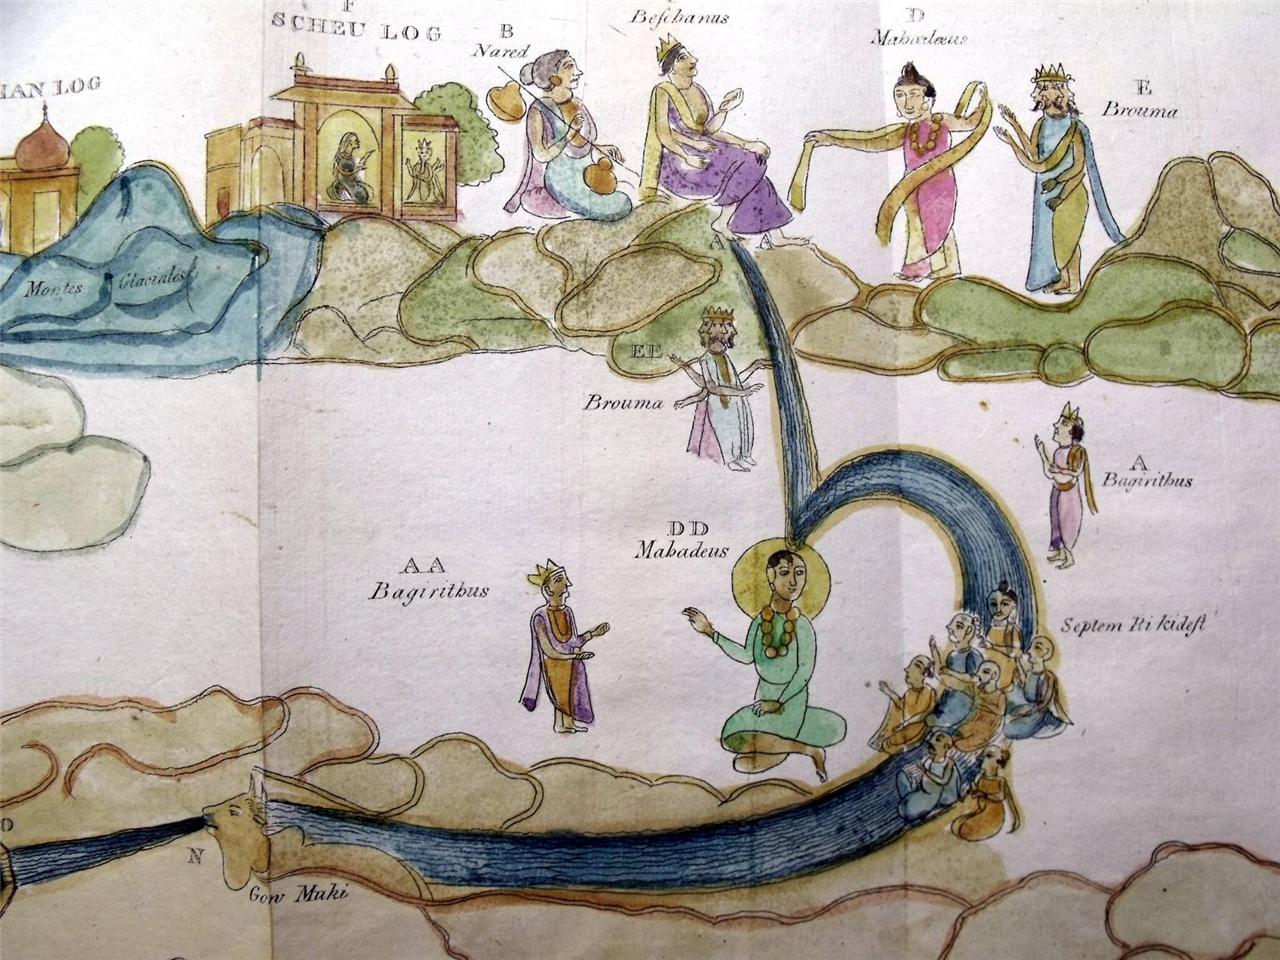 F
SCHEU LOG
B
Nared
Beschanus
D
Mahadæus
E
Brouma
HAN LOG
Montes Glaciales
A A
EE
Brouma
A
Bagirithus
DD
Mahadeus
AA
Bagirithus
Septem Rikidest
O
N
Gow Muki